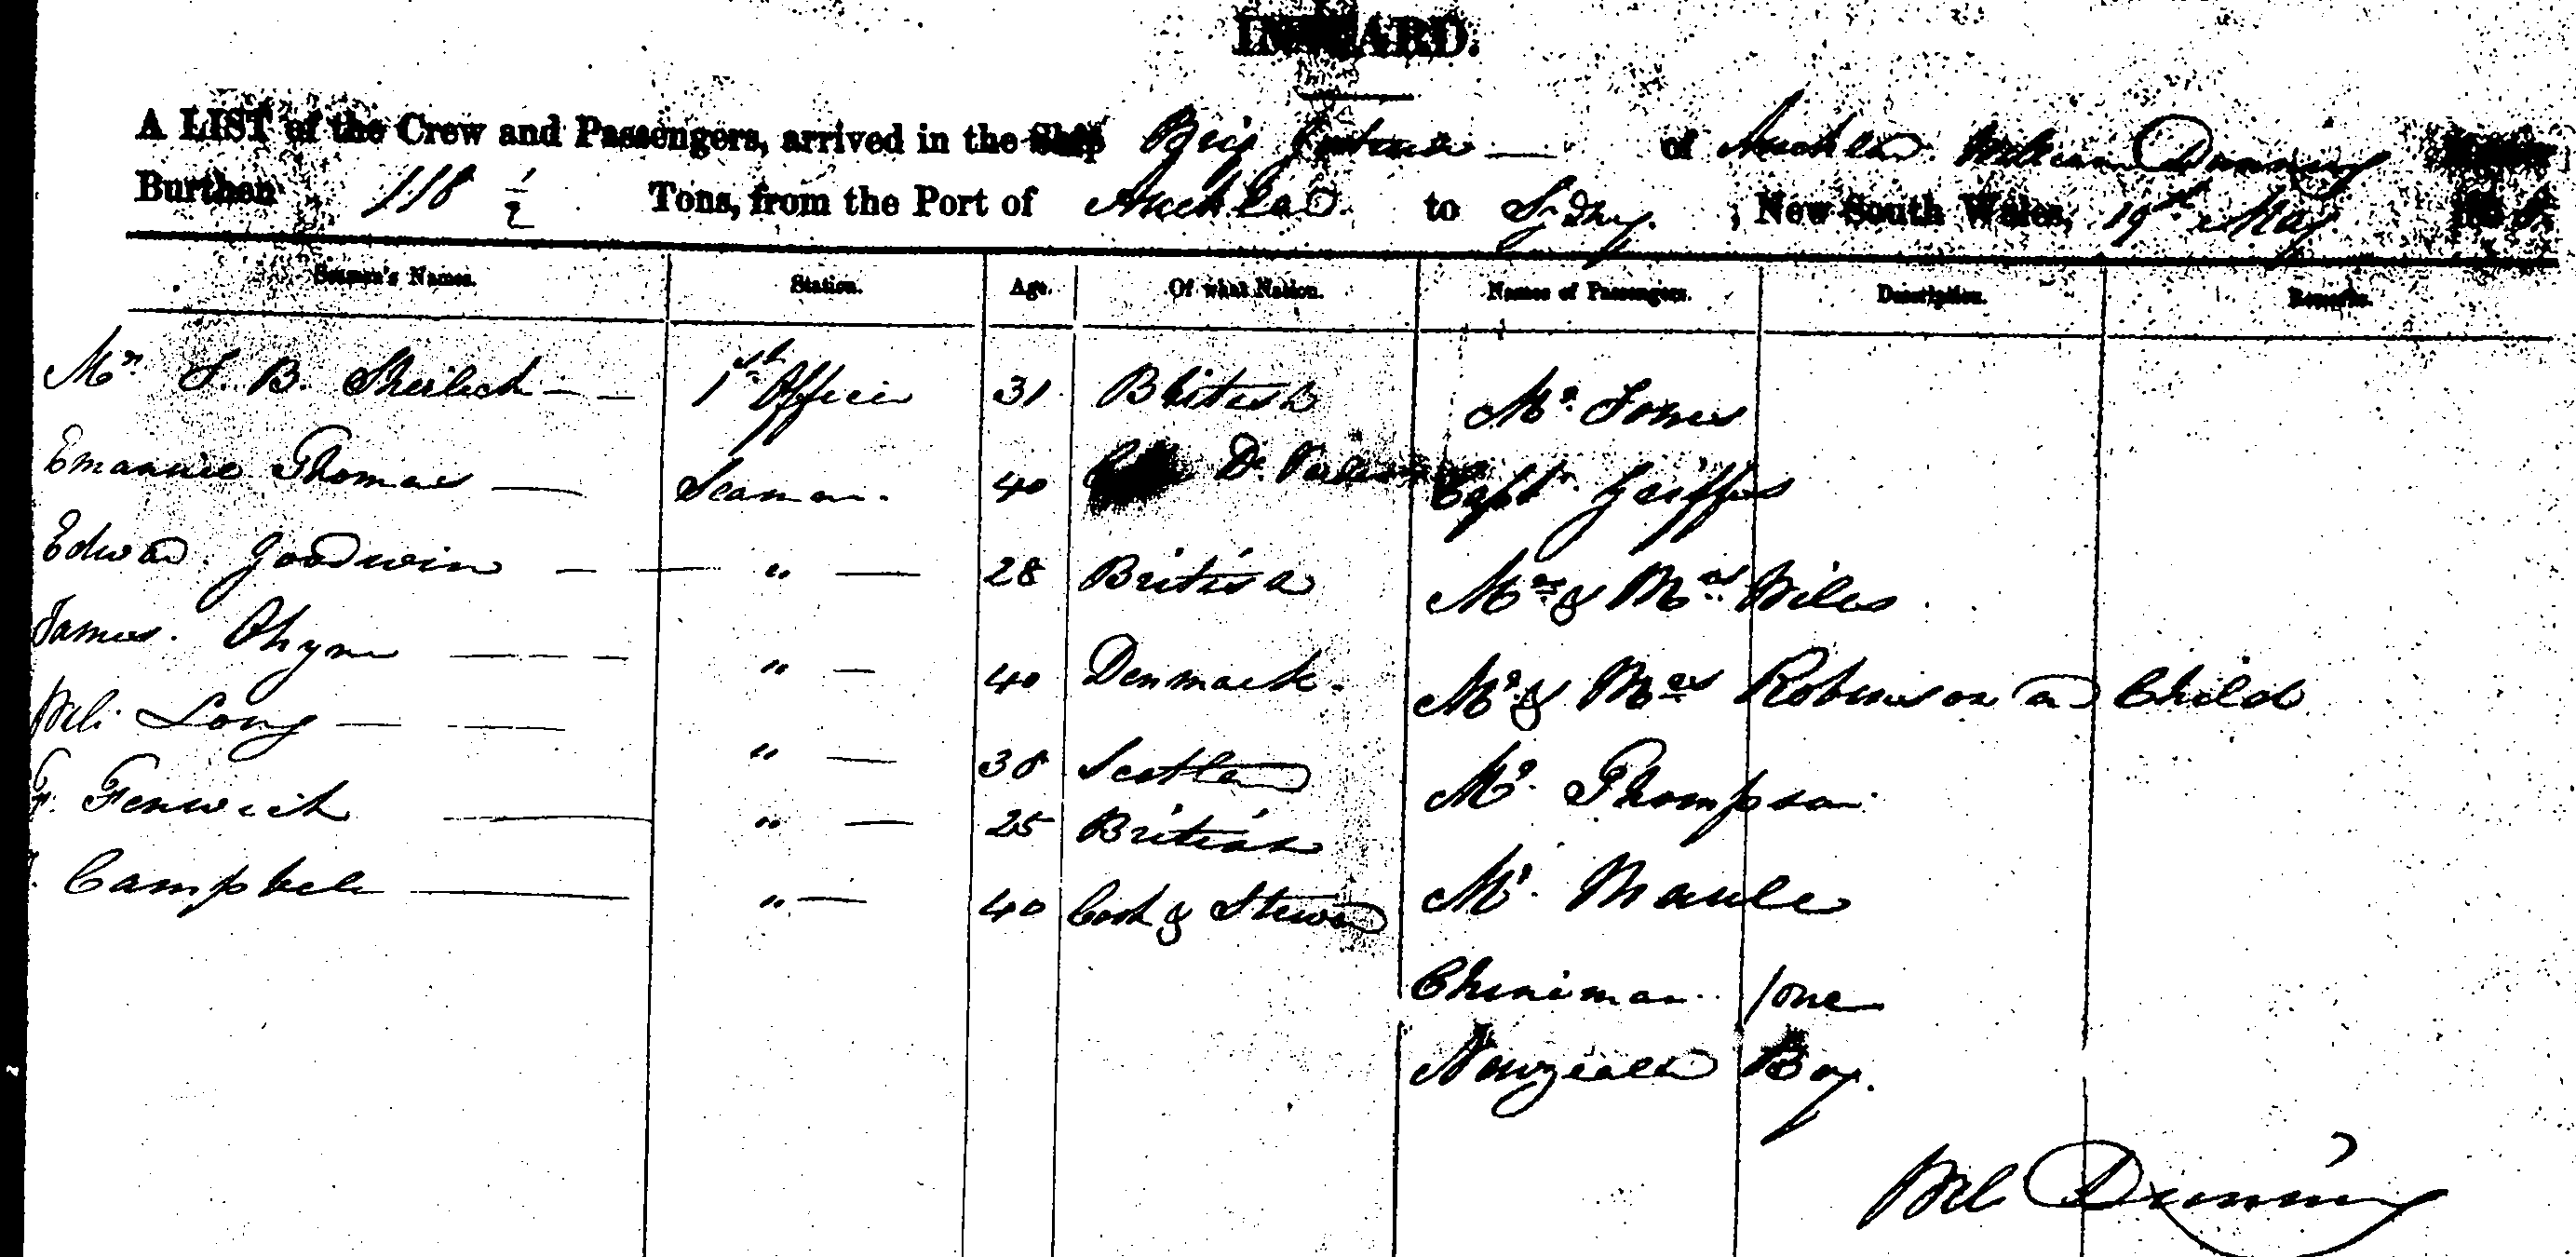 INWARD.
A LIST of the Crew and Passengers, arrived in the Ship Brig of Aucklad William Dunning
Burthen 118 1/2 Tons, from the Port of Aucklad. to Sydney. , New South Wales, 19th May
Seamen's Names. Station. Age. Of what Nation. Names of Passengers. Description. Remarks.
Mr. S. B. 1st Officer 31 British Mr. Jones
Emanuel Thomas Seaman. 40 D. Captn.
Edwad Goodwin " 28 British Mr & Mrs Wiles
James. " 40 Denmark. Mr & Mrs Robinson ad Child
Wm. Long " 38 Scotlad Mr. Thompson.
F. Fenwick " 25 British
Campbell " 40 Cook & Steward Mr. Maule
Chiniman. 1 one
Newzealad Boy.
Wm Dunning